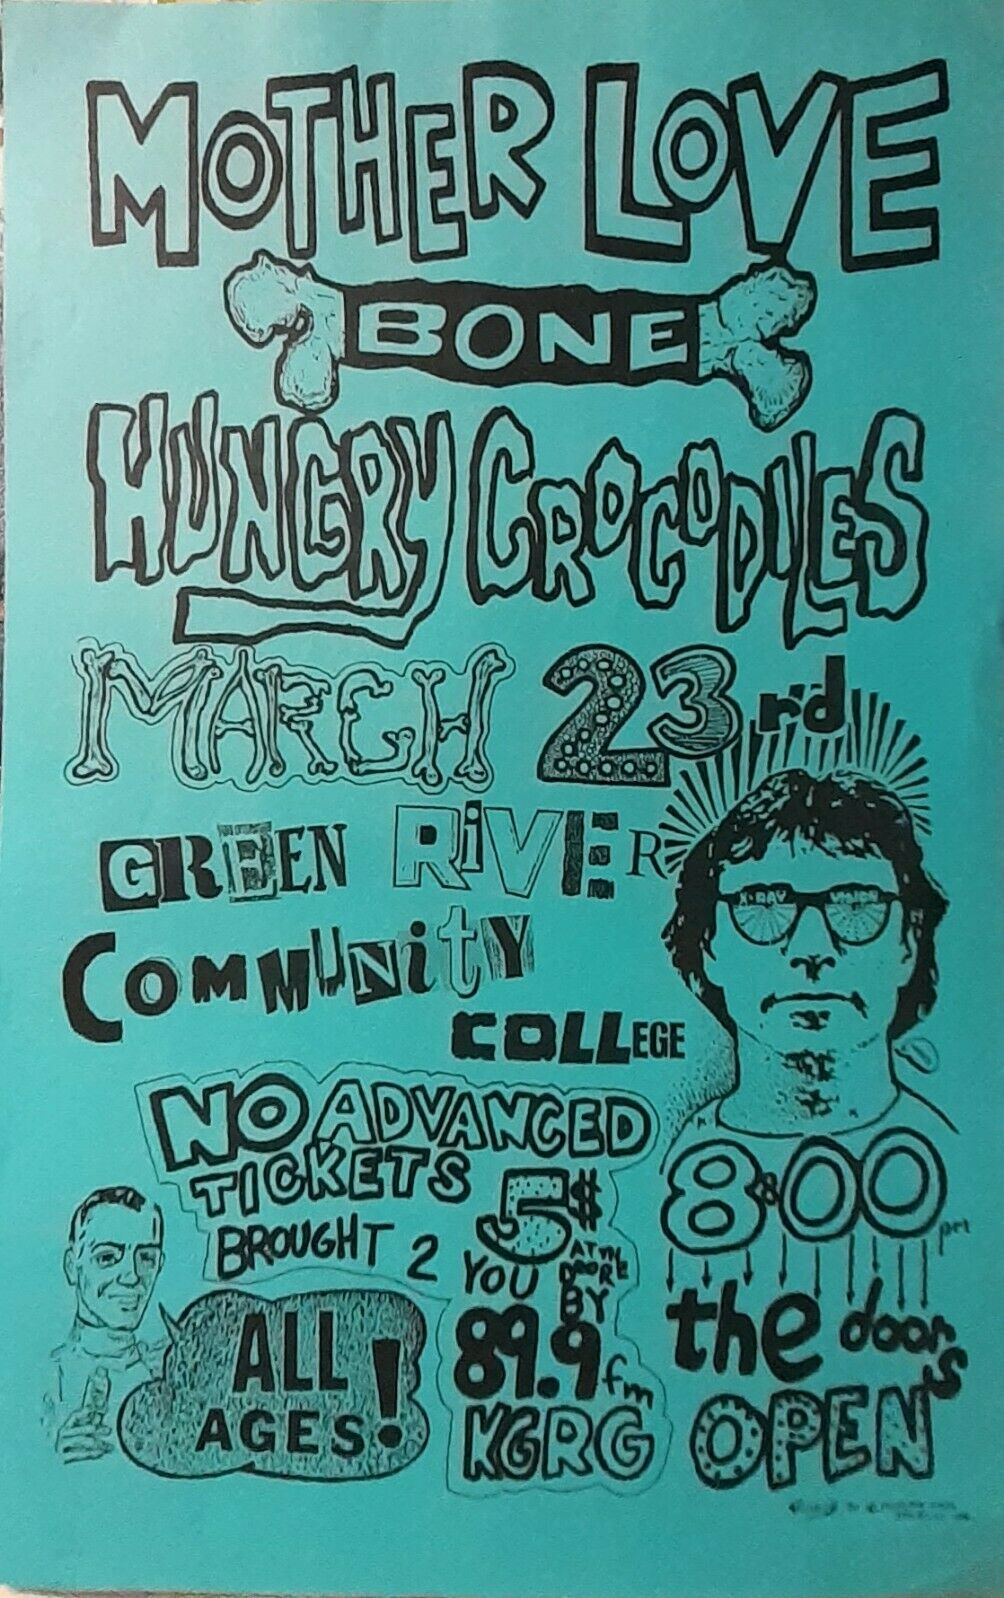 MOTHER LOVE
BONE
HUNGRY CROCODILES
MARCH 23rd
GREEN RIVER
COMMUNITY
COLLEGE
X-RAY VISION
NO ADVANCED
TICKETS
5$
AT THE
DOORE
BROUGHT 2
YOU BY
89.9 fm
KGRG
ALL
AGES!
8:00 pm
the door's
OPEN